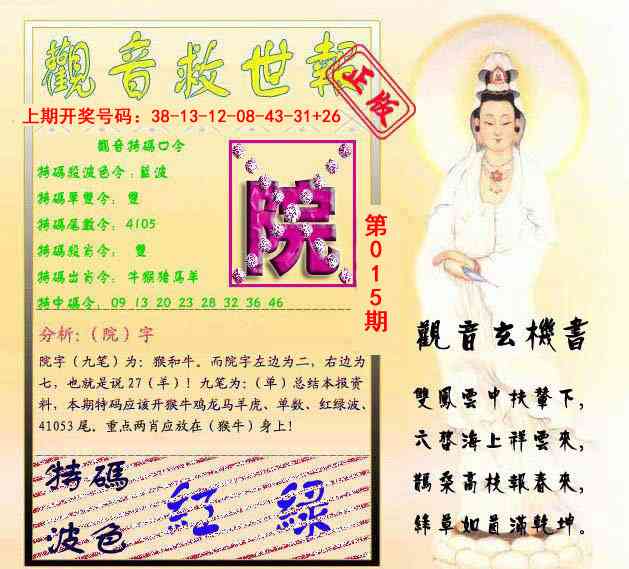 觀音救世報
正版
上期开奖号码：38-13-12-08-43-31+26
觀音特碼口令
特碼段波色令：藍波
特碼單雙令： 雙
特碼尾數令：4105
特碼段肖令： 雙
特碼出肖令：牛猴猪馬羊
特中碼令： 09 13 20 23 28 32 36 46
院
第015期
分析：（院）字
院字（九笔）为：猴和牛。而院字左边为二，右边为
七，也就是说27（羊）！九笔为：（单）总结本报资
料，本期特码应该开猴牛鸡龙马羊虎、单数、红绿波、
41053尾。重点两肖应放在（猴牛）身上！
特碼
波色
紅 綠
觀音玄機書
雙鳳雲中扶輦下，
海上祥雲來，
桑高枝報春來，
草如茵滿乾坤。